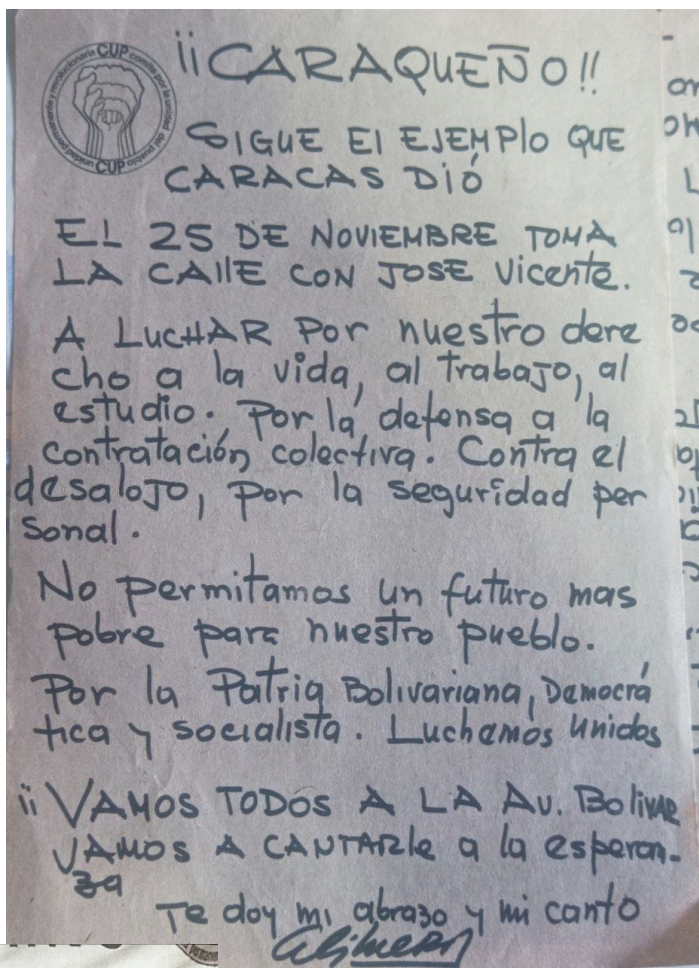 CUP comite por la unidad del pueblo CUP unidad permanente y revolucionaria
¡¡CARAQUEÑO!!
SIGUE El EJEMPlo QUE
CARACAS DIÓ
EL 25 DE NOVIEMBRE TOMA
LA CAllE CON JOSE Vicente.
A LucHAR Por nuestro dere
cho a la vida, al trabaJo, al
estudio. Por la defensa a la
contratación colectiva. Contra el
desaloJo, por la seguridad per
sonal.
No permitamos un futuro mas
pobre para nuestro pueblo.
Por la Patria Bolivariana, Democrá
tica y socialista. Luchamos Unidos
¡¡VAMOS TODOS A LA AV. BoliVAR
VAMOS A CANTARle a la esperan-
za
Te doy mi abrazo y mi canto